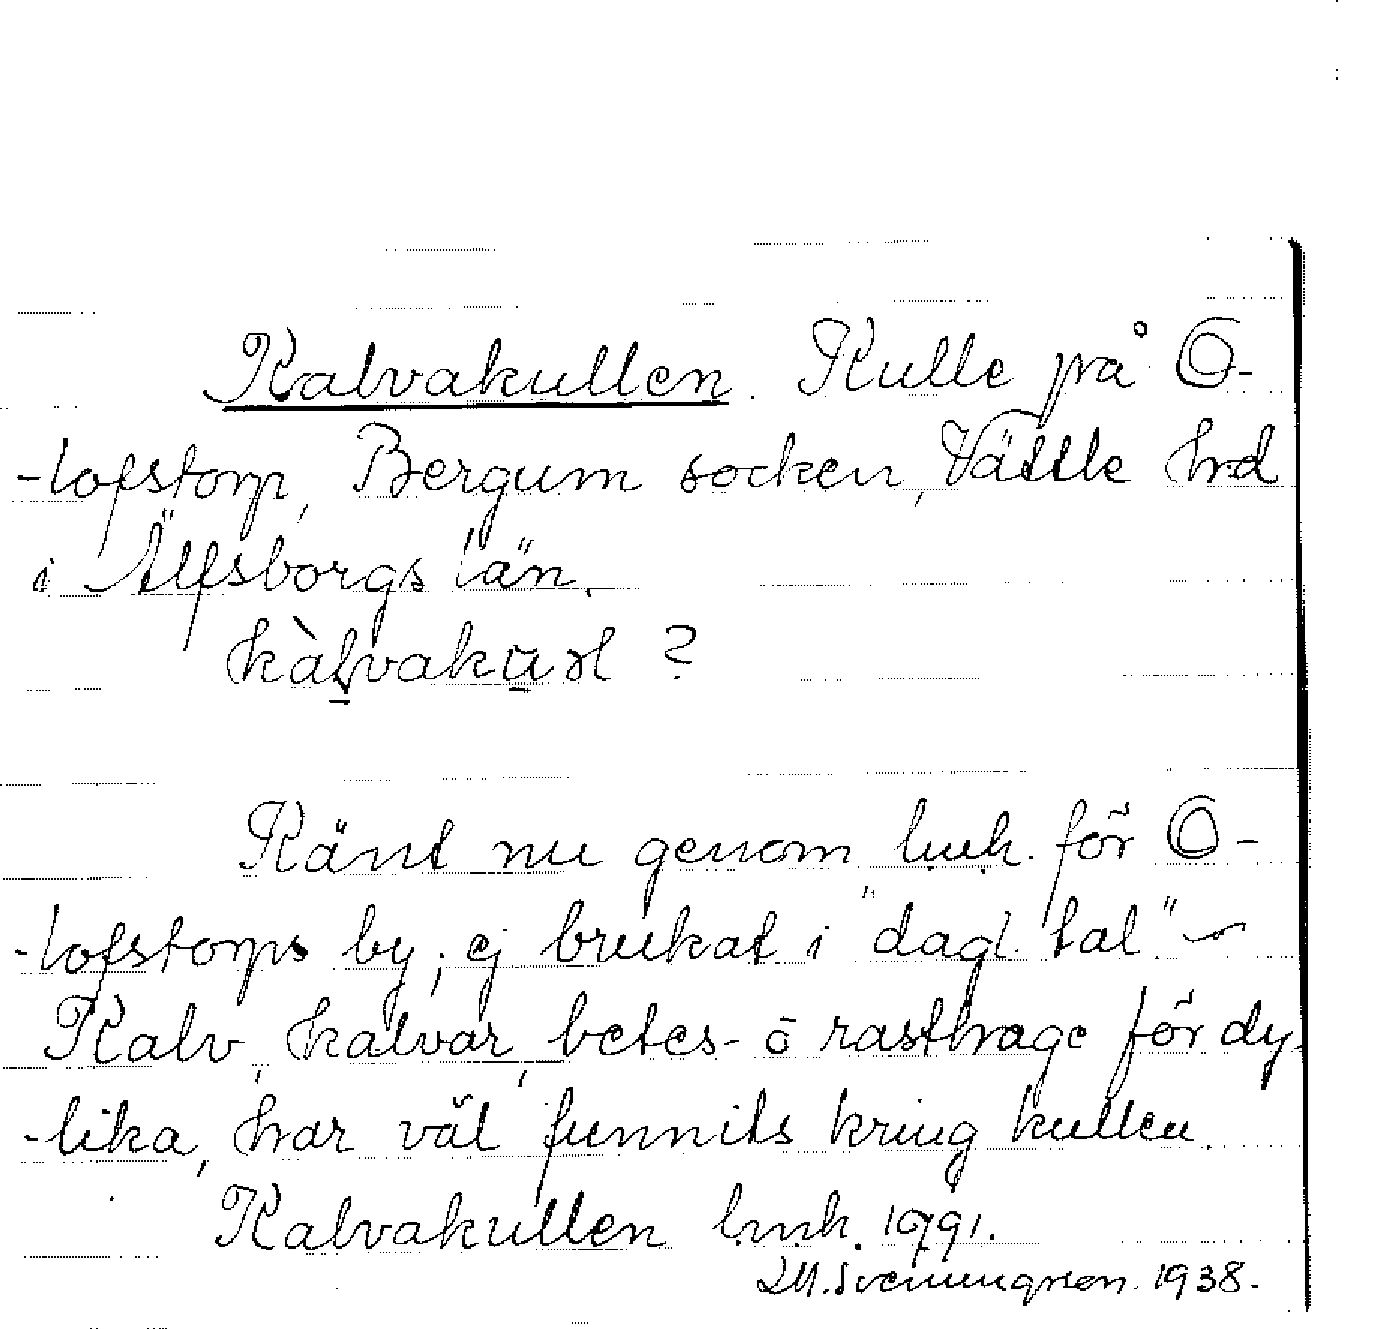 Kalvakullen. Kulle på O-
-lofstorp, Bergum socken, Vättle hrd
i Älfsborgs län.
?
Känt nu genom lmk. för O-
-lofstorps by; ej brukat i "dagl. tal."
Kalv, kalvar, betes- o rasthage för dy-
-lika, har väl funnits kring kullen.
Kalvakullen lmk. 1791.
1938.